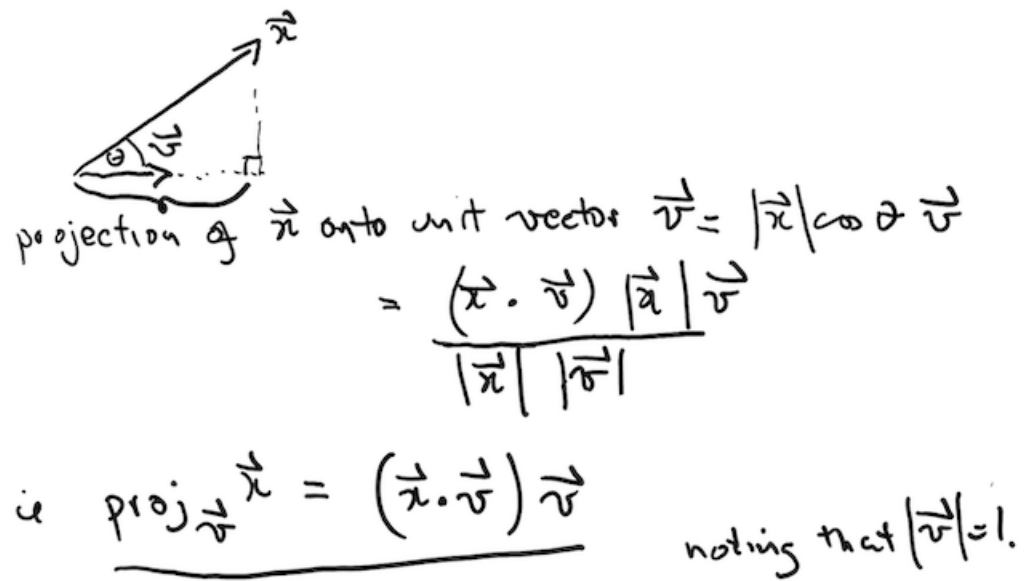 x⃗
θ v⃗
projection of x⃗ onto unit vector v⃗ = |x⃗| cos θ v⃗
= (x⃗ . v⃗) |x⃗| v⃗
|x⃗| |v⃗|
ie proj_v⃗ x⃗ = (x⃗ . v⃗) v⃗
noting that |v⃗| = 1.